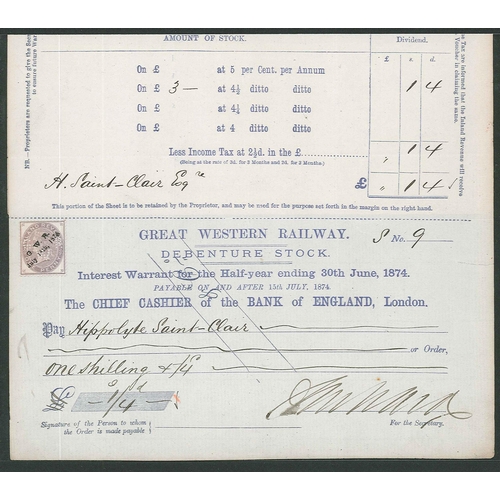 AMOUNT OF STOCK.
Dividend.
£ s. d.
On £ at 5 per Cent. per Annum
On £ 3— at 4½ ditto ditto 1 4
On £ at 4¼ ditto ditto
On £ at 4 ditto ditto
Less Income Tax at 2½d. in the £. " 1 4
(Being at the rate of 3d. for 3 Months and 2d. for 3 Months.)
H. Saint-Clair Esqre £ " 1 4
This portion of the Sheet is to be retained by the Proprietor, and may be used for the purpose set forth in the margin on the right hand.
NB.—Proprietors are requested to give the
to ensure future
are informed that the Inland Revenue will receive
Voucher in claiming the same.
GREAT WESTERN RAILWAY. S No. 9
DEBENTURE STOCK.
G. W. R.
Interest Warrant for the Half-year ending 30th June, 1874.
PAYABLE ON AND AFTER 15th JULY, 1874.
The CHIEF CASHIER of the BANK of ENGLAND, London.
Pay Hippolyte Saint-Clair
or Order,
One shilling & /4
£ s d
—1/4
Signature of the Person to whom
the Order is made payable
For the Secretary.